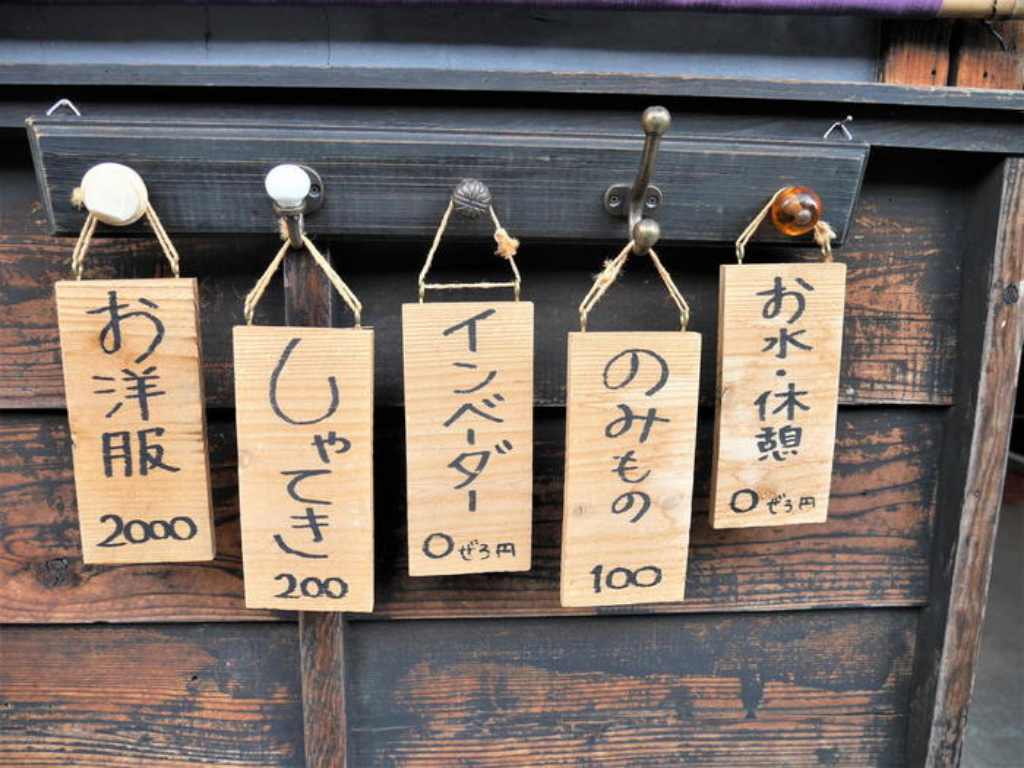 お洋服
2000
しゃてき
200
インベーダー
0ぜろ円
のみもの
100
お水・休憩
0ぜろ円